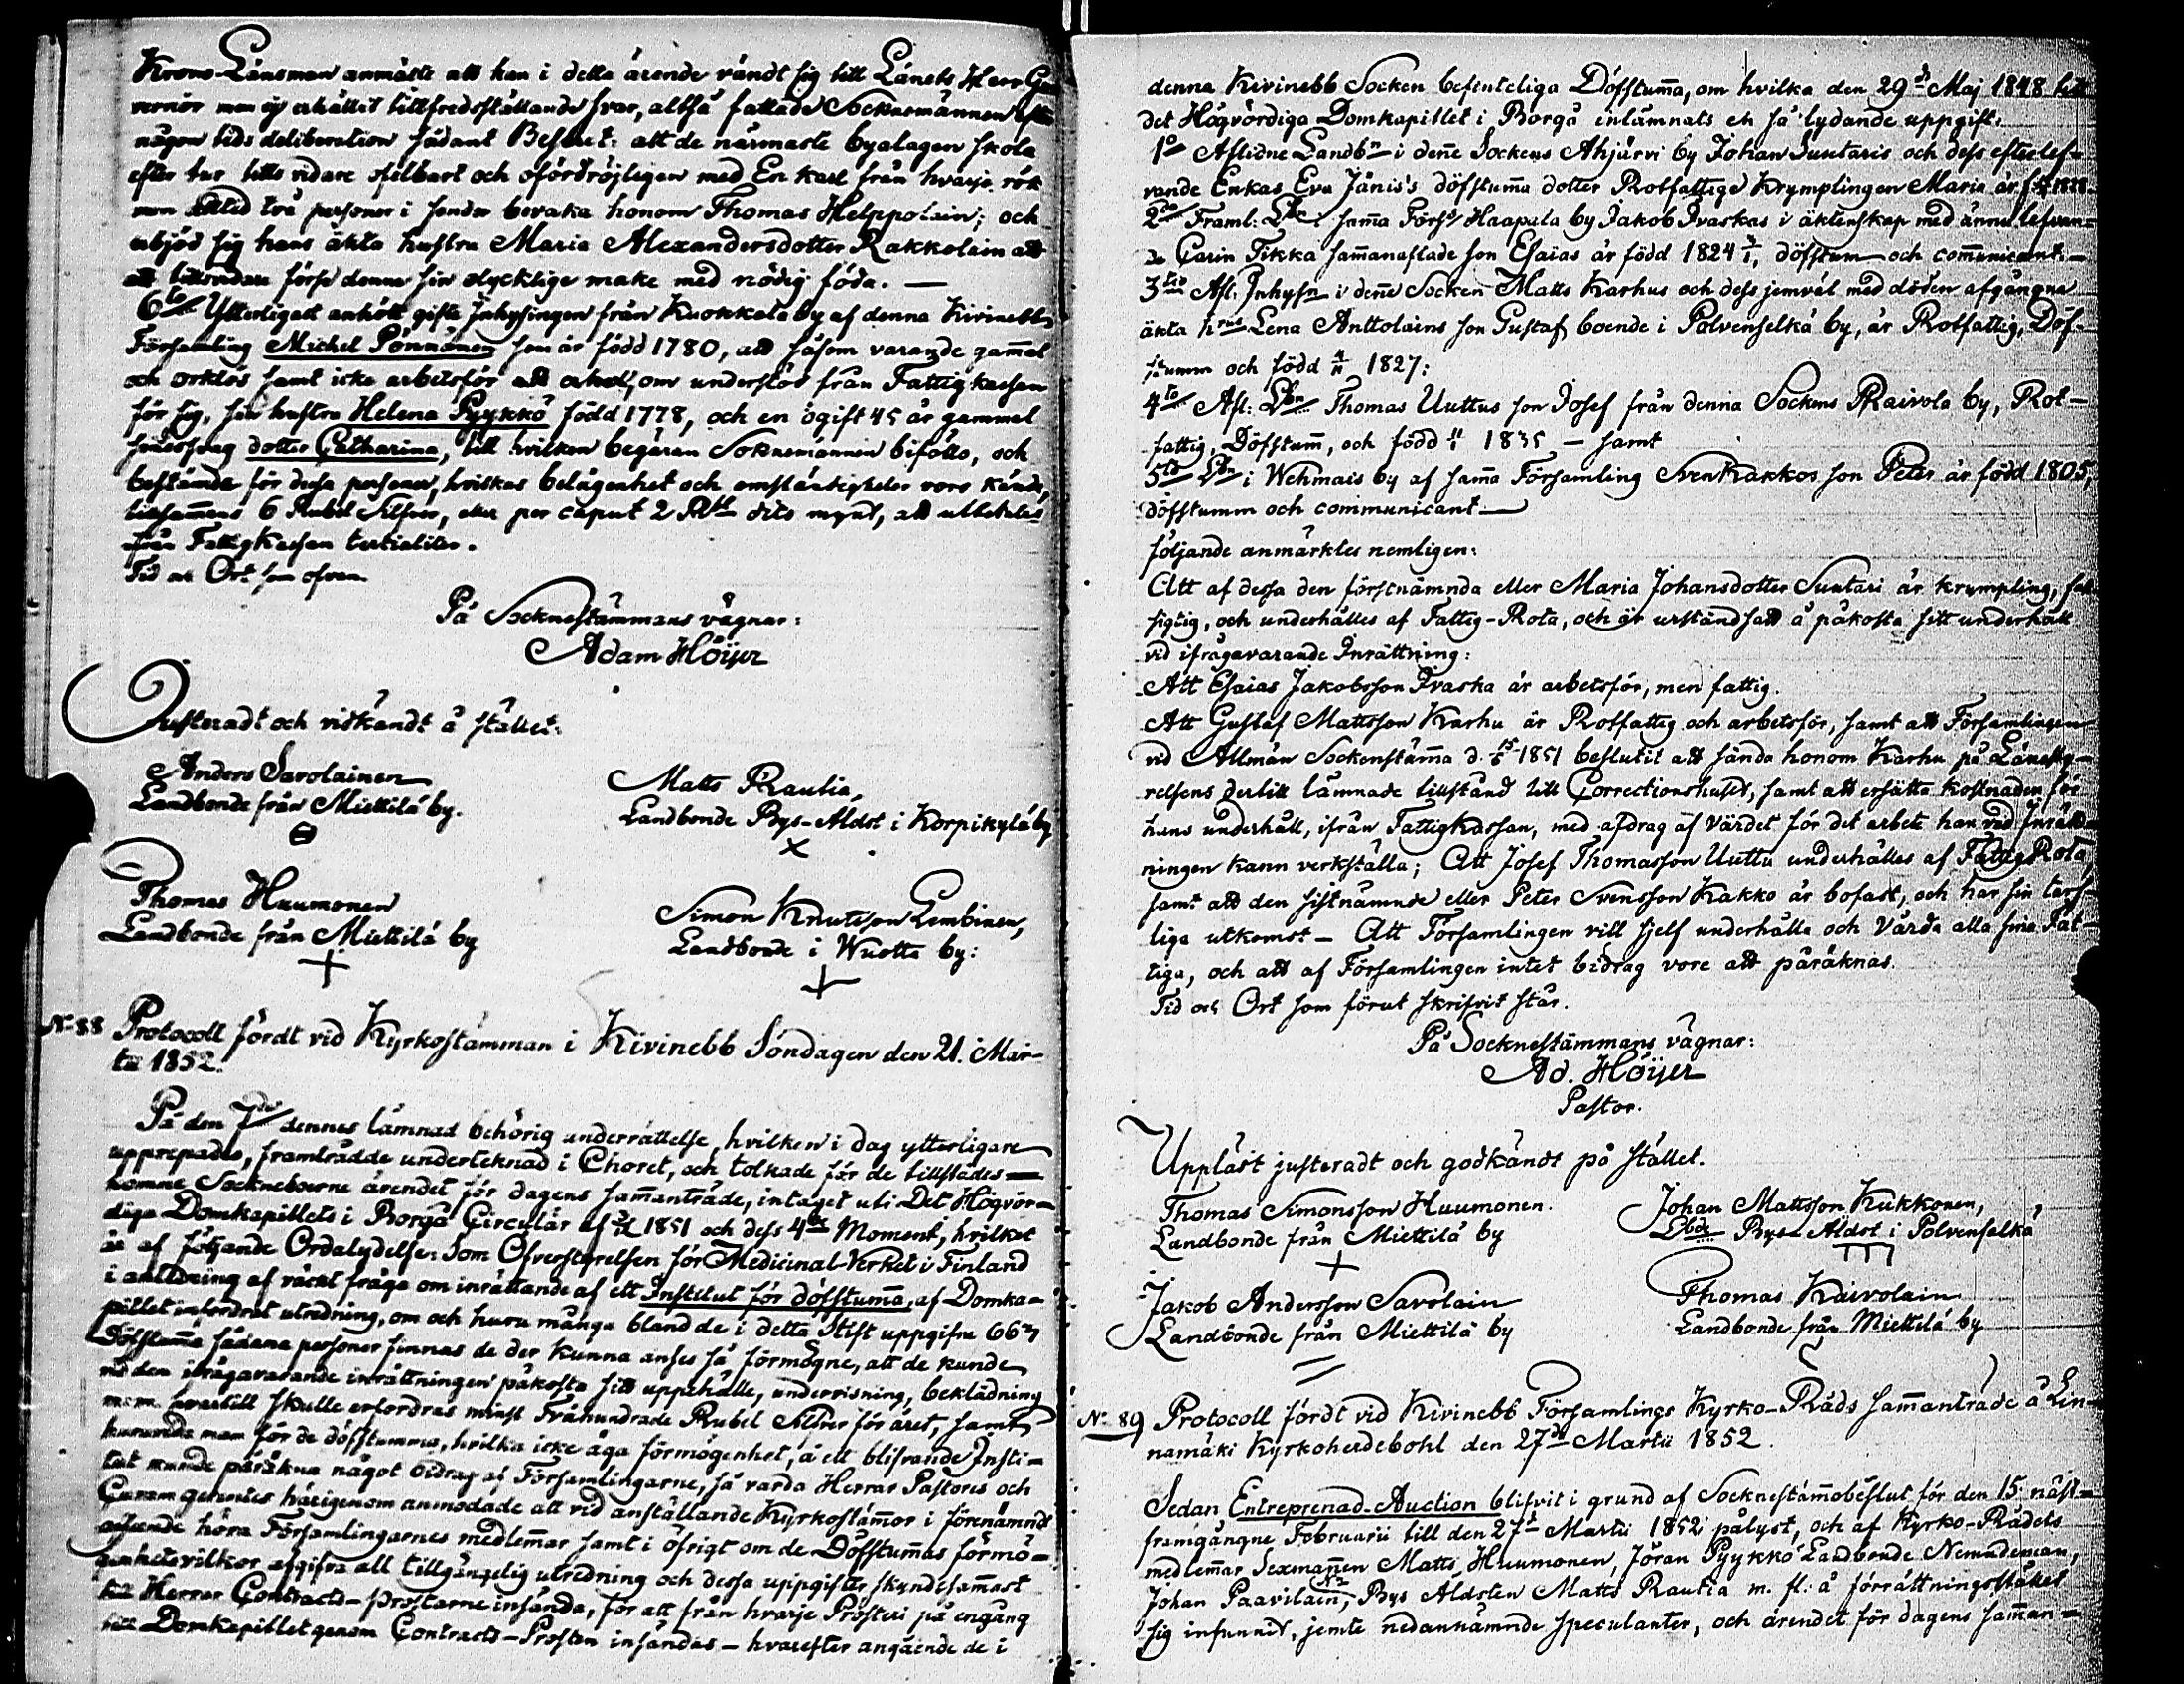 Krono-Länsman anmälte att han i detta ärende vändt sig till Länets Herr Gu
vernör men ej erhållit tillfredsställande svar, altså fattade Socknemännen efter
någon tids deliberation sådant Beslut: att de närmaste byalagen skola
efter tur tills vidare ofelbart och ofördröjligen med En karl från hvarje rök
men alltid två personer i sender bevaka honom Thomas Helppolain; och
utbjöd sig hans äkta hustru Maria Alexandersdotter Rakkolain att
förse denne sin olycklige make med nödig föda. —
6to Ytterligast anhölt gifte Inhysingen från Kuokkala by af denna Kivinebb
Församling Michel Pönnönen som är född 1780, att såsom varande gammal
och orklös samt icke arbetsför att erhålla om understöd från Fattigkassan
för sig, sin hustru Helena Pyykkö född 1778, och en ogift 45 år gammal
dotter Catharina, till hvilken begäran Soknemännen biföllo, och
bestämde för dessa personer, hvilkas belägenhet och omständigheter voro kände,
tillsammans 6 Rubel Silfver, eller per caput 2 Rbl dito mynt, att utbetalas
från Fattigkassan tertialiter.
Tid och Ort som ofvan.
På Socknestämmans vägnar:
Adam Höijer
Justeradt och vidkändt å stället:
Anders Savolainen
Landbonde från Miettilä by.
Matts Rautia,
Landbonde Bys-Äldst i Korpikylä by
Thomas Huumonen
Landbonde från Miettilä by
Simon Knutsson Lembinen,
Landbonde i Wuotta by:
N. 88 Protocoll fördt vid Kyrkostämman i Kivinebb Söndagen den 21. Mar-
tii 1852.
På den 7de dennes lämnad behörig underrättelse, hvilken i dag ytterligare
upprepades, framträdde undertecknad i Choret, och tolkade för de tillstädes-
komne Socknebоerne ärendet för dagens sammanträde, intaget uti Det Högvör-
diga Domkapitlets i Borgå Circulär af 1851 och dess 4de Moment, hvilket
är af följande Ordalydelse: Som Öfverstyrelsen för Medicinal-Verket i Finland
i anledning af väckt fråga om inrättande af ett Institut för döfstumma, af Domka-
pitlet infordrat utredning, om och huru många bland de i detta Stift uppgifne 662
Döfstumma sådana personer finnas de der kunna anses så förmögne, att de kunde
vid den ifrågavarande inrättningen påkosta sitt uppehälle, undervisning, beklädning
m.m. hvartill skulle erfordras minst Tråhundrade Rubel Silfver för året, samt
huruvida man för de döfstumma, hvilka icke äga förmögenhet, å ett blifvande Insti-
tut kunde påräkna något bidrag af Församlingarne, så varda Herrar Pastores och
Curam gerentes härigenom anmodade att vid anställande Kyrkostämmor i förenämnde
afseende höra Församlingarnes medlemmar samt i öfrigt om de Döfstummas förmö-
genhetsvilkor afgifva all tillgängelig utredning och dessa uppgifter skyndesammast
till Herrar Contracts-Prostarne insända, för att från hvarje Prosteri på engång
till Domkapitlet genom Contracts-Prosten insändas — hvarefter angående de i
denna Kivinebb Socken befinteliga Döfstumma, om hvilka den 29de Maj 1848 till
det Högvördiga Domkapitlet i Borgå inlämnats en så lydande uppgift:
1o Aflidne Landbn i denne Sockens Ahjärvi by Johan Suutaris och dess efterlef-
vande Enkas Eva Jänis's döfstumma dotter Rotfattige Krymplingen Maria är
2do Framl: Lbn i samma Förs: Haapala by Jakob Ivaskas i äktenskap med ännu lefvan-
de Carin Tikka sammanaflade son Esaias är född 1824, döfstum och communicant:—
3tio Afl: Inhysn i denne Socken Matts Karhus och dess jemväl med döden afgångna
äkta hrus Lena Anttolains son Gustaf boende i Polvenselkä by, är Rotfattig, Döf-
stumm och född 4/11 1827:
4to Afl: Lbn Thomas Uuttus son Josef från denna Sockens Raivola by, Rot-
fattig, Döfstumm, och född 1835 — samt
5to Lbn i Wehmais by af samma Församling Sven Kakkos son Peter är född 1805,
döfstumm och communicant —
följande anmärktes nemligen:
Att af dessa den förstnämnda eller Maria Johansdotter Suutari är krympling,
sigtig, och underhålles af Fattig-Rota, och är urståndsatt å påkosta sitt underhåll
vid ifrågavarande Inrättning:
Att Esaias Jakobsson Ivaska är arbetsför, men fattig.
Att Gustaf Mattsson Karhu är Rotfattig och arbetsför, samt att Församlingen
vid Allmän Sockenstämma d. 1851 beslutit att sända honom Karhu på Länesty-
relsens dertill lämnade tillstånd till Correctionshuset, samt att ersätta kostnaden för
hans underhåll, ifrån Fattigkassan, med afdrag af värdet för det arbete han vid Inrätt-
ningen kann verkställa; Att Josef Thomasson Uuttu underhålles af Fattig Rota,
samt att den sistnämnde eller Peter Svensson Kakko är bofast, och har sin tarf-
liga utkomst — Att Församlingen vill sjelf underhålla och Vårda alla sina Fat-
tiga, och att af Församlingen intet bidrag vore att påräknas.
Tid och Ort som förut skrifvit står.
På Socknestämmans vägnar:
Ad. Höijer
Pastor.
Uppläst justeradt och godkändt på stället.
Thomas Simonsson Huumonen.
Landbonde från Miettilä by
Johan Mattsson Kukkonen,
Lbde Bys-Äldst i Polvenselkä
Jakob Andersson Savolain
Landbonde från Miettilä by
Thomas Kaivolain
Landbonde från Miettilä by
N. 89 Protocoll fördt vid Kivinebb Församlings Kyrko-Råds sammanträde å Lin-
namäki Kyrkoherdebohl den 27de Martii 1852.
Sedan Entreprenad-Auction blifvit i grund af Socknestämmobeslut för den 15. näst-
framgångne Februarii till den 27de Martii 1852 pålyst, och af Kyrko-Rådets
medlemmar Sexmannen Matts Huumonen, Jöran Pyykkö Landbonde Nemndeman,
Johan Paavilain, Bys Äldsten Matts Rautia m. fl. å förrättningsstället
sig infunnit, jemte nedannämnde speculanter, och ärendet för dagens samman-